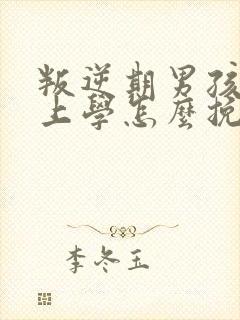 叛逆期男孩
上學怎麼挽
李冬玉